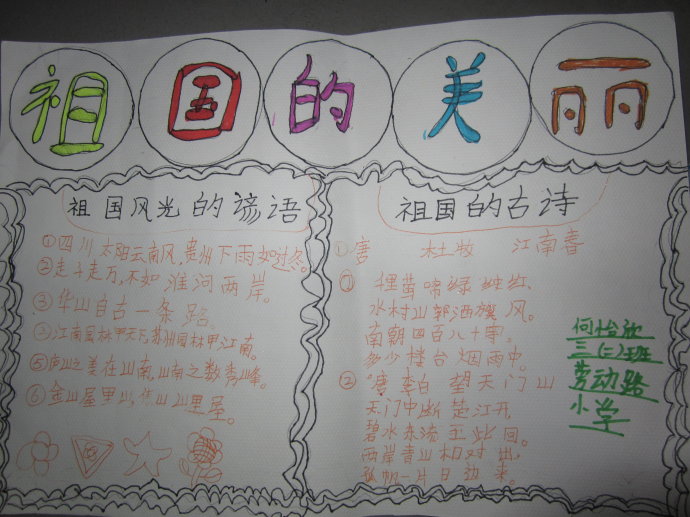 祖国的美丽
祖国风光的谚语
①四川太阳云南风,贵州下雨如过冬。
②走千走万,不如淮河两岸。
③华山自古一条路。
江南园林甲天下,苏州园林甲江南。
⑤庐山之美在山南,山南之数秀峰。
⑥金山屋里山,焦山山里屋。
祖国的古诗
①唐 杜牧 江南春
①里莺啼绿映红,
水村山郭酒旗风。
南朝四百八十寺,
多少楼台烟雨中。
②唐 李白 望天门山
天门中断楚江开,
碧水东流至此回。
两岸青山相对出,
孤帆一片日边来。
何怡欣
三(二)班
劳动路
小学